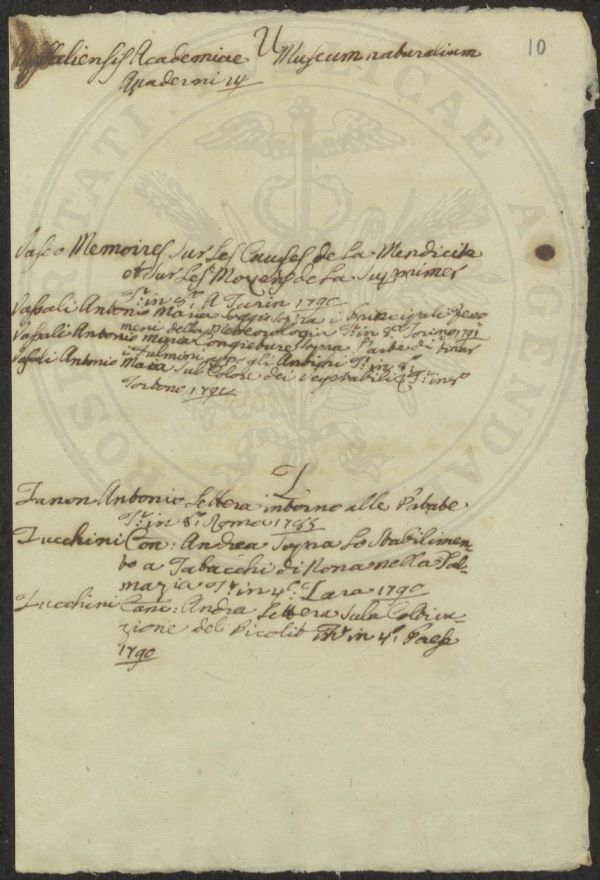 10
U
Upsaliensis Academiae Museum naturalium
Quaderni 14
Vasco Memoires sur Les Causes de La Mendicité
et sur Les Moyens de La Supprimer
T: in 8: A Turin 1790
Vassali Antonio Maria Saggio sopra i Principali Feno
meni della Meteorologia T: in 8: Torino
Vassali Antonio Maria Congieture sopra l'arte di tirar
i Fulmini apo gli Antichi T: in 8:
Vassali Antonio Maria Sul Colore dei Vegetabili T: in
Torino
Zanon Antonio Lettera intorno alle Patate
T: in 8: Roma 1785
Zucchini Can: Andrea Sopra Lo Stabilimen-
to a Tabacchi di Nona nella Dal-
mazia T: in 4: Zara 1790
Zucchini Canc: Andrea Lettera Sula Coltiva-
zione del Picolit in 4:
1790